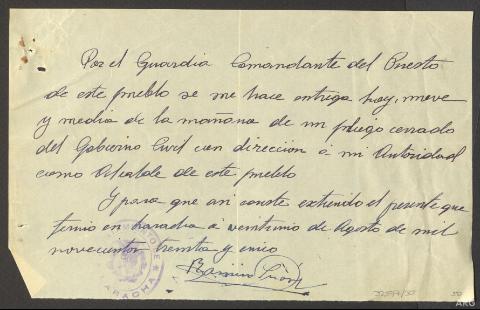 Por el Guardia Comandante del Puesto
de este pueblo se me hace entrega hoy, nueve
y media de la mañana de un pliego cerrado
del Gobierno Civil con dirección a mi Autoridad
como Alcalde de este pueblo
Y para que asi conste extiendo el presente que
firmo en a veintiuno de Agosto de mil
novecientos treinta y cinco
Ramiro
ARG